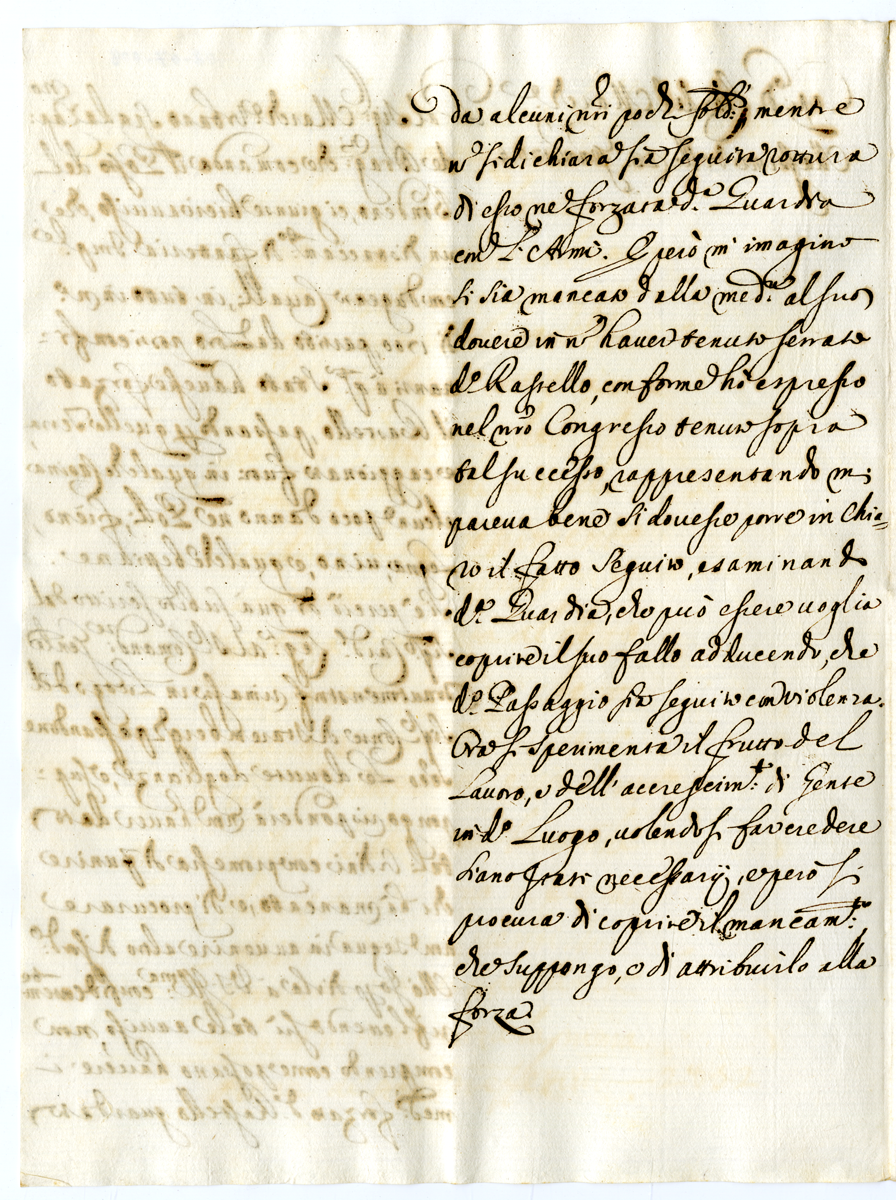 da alcuni nri pochi sold:i, mentre
nō si dichiara sia seguita rottura
di esso ne forzata d.a Guardia
con L'Armi. E però m'imagino
si sia mancato dalla med.a al suo
douere in nō hauer tenuto serrato
d.o Rastello, conforme hò espresso
nel nrō Congresso tenuto sopra
tal successo, rappresentando mi
pareua bene si douesse porre in Chia=
ro il fatto seguito, esaminando
d.a Guardia, che può essere uoglia
coprire il suo fallo adducendo, che
d.o Passaggio sia seguito con violenza.
Ora si sperimenta il frutto del
Lauoro, e dell'accrescim.to: di Gente
in d.o Luogo, uolendosi far credere
siano stati necessarij, e però si
procura di coprire il mancam.to:
che suppongo, e di attribuirlo alla
forza.